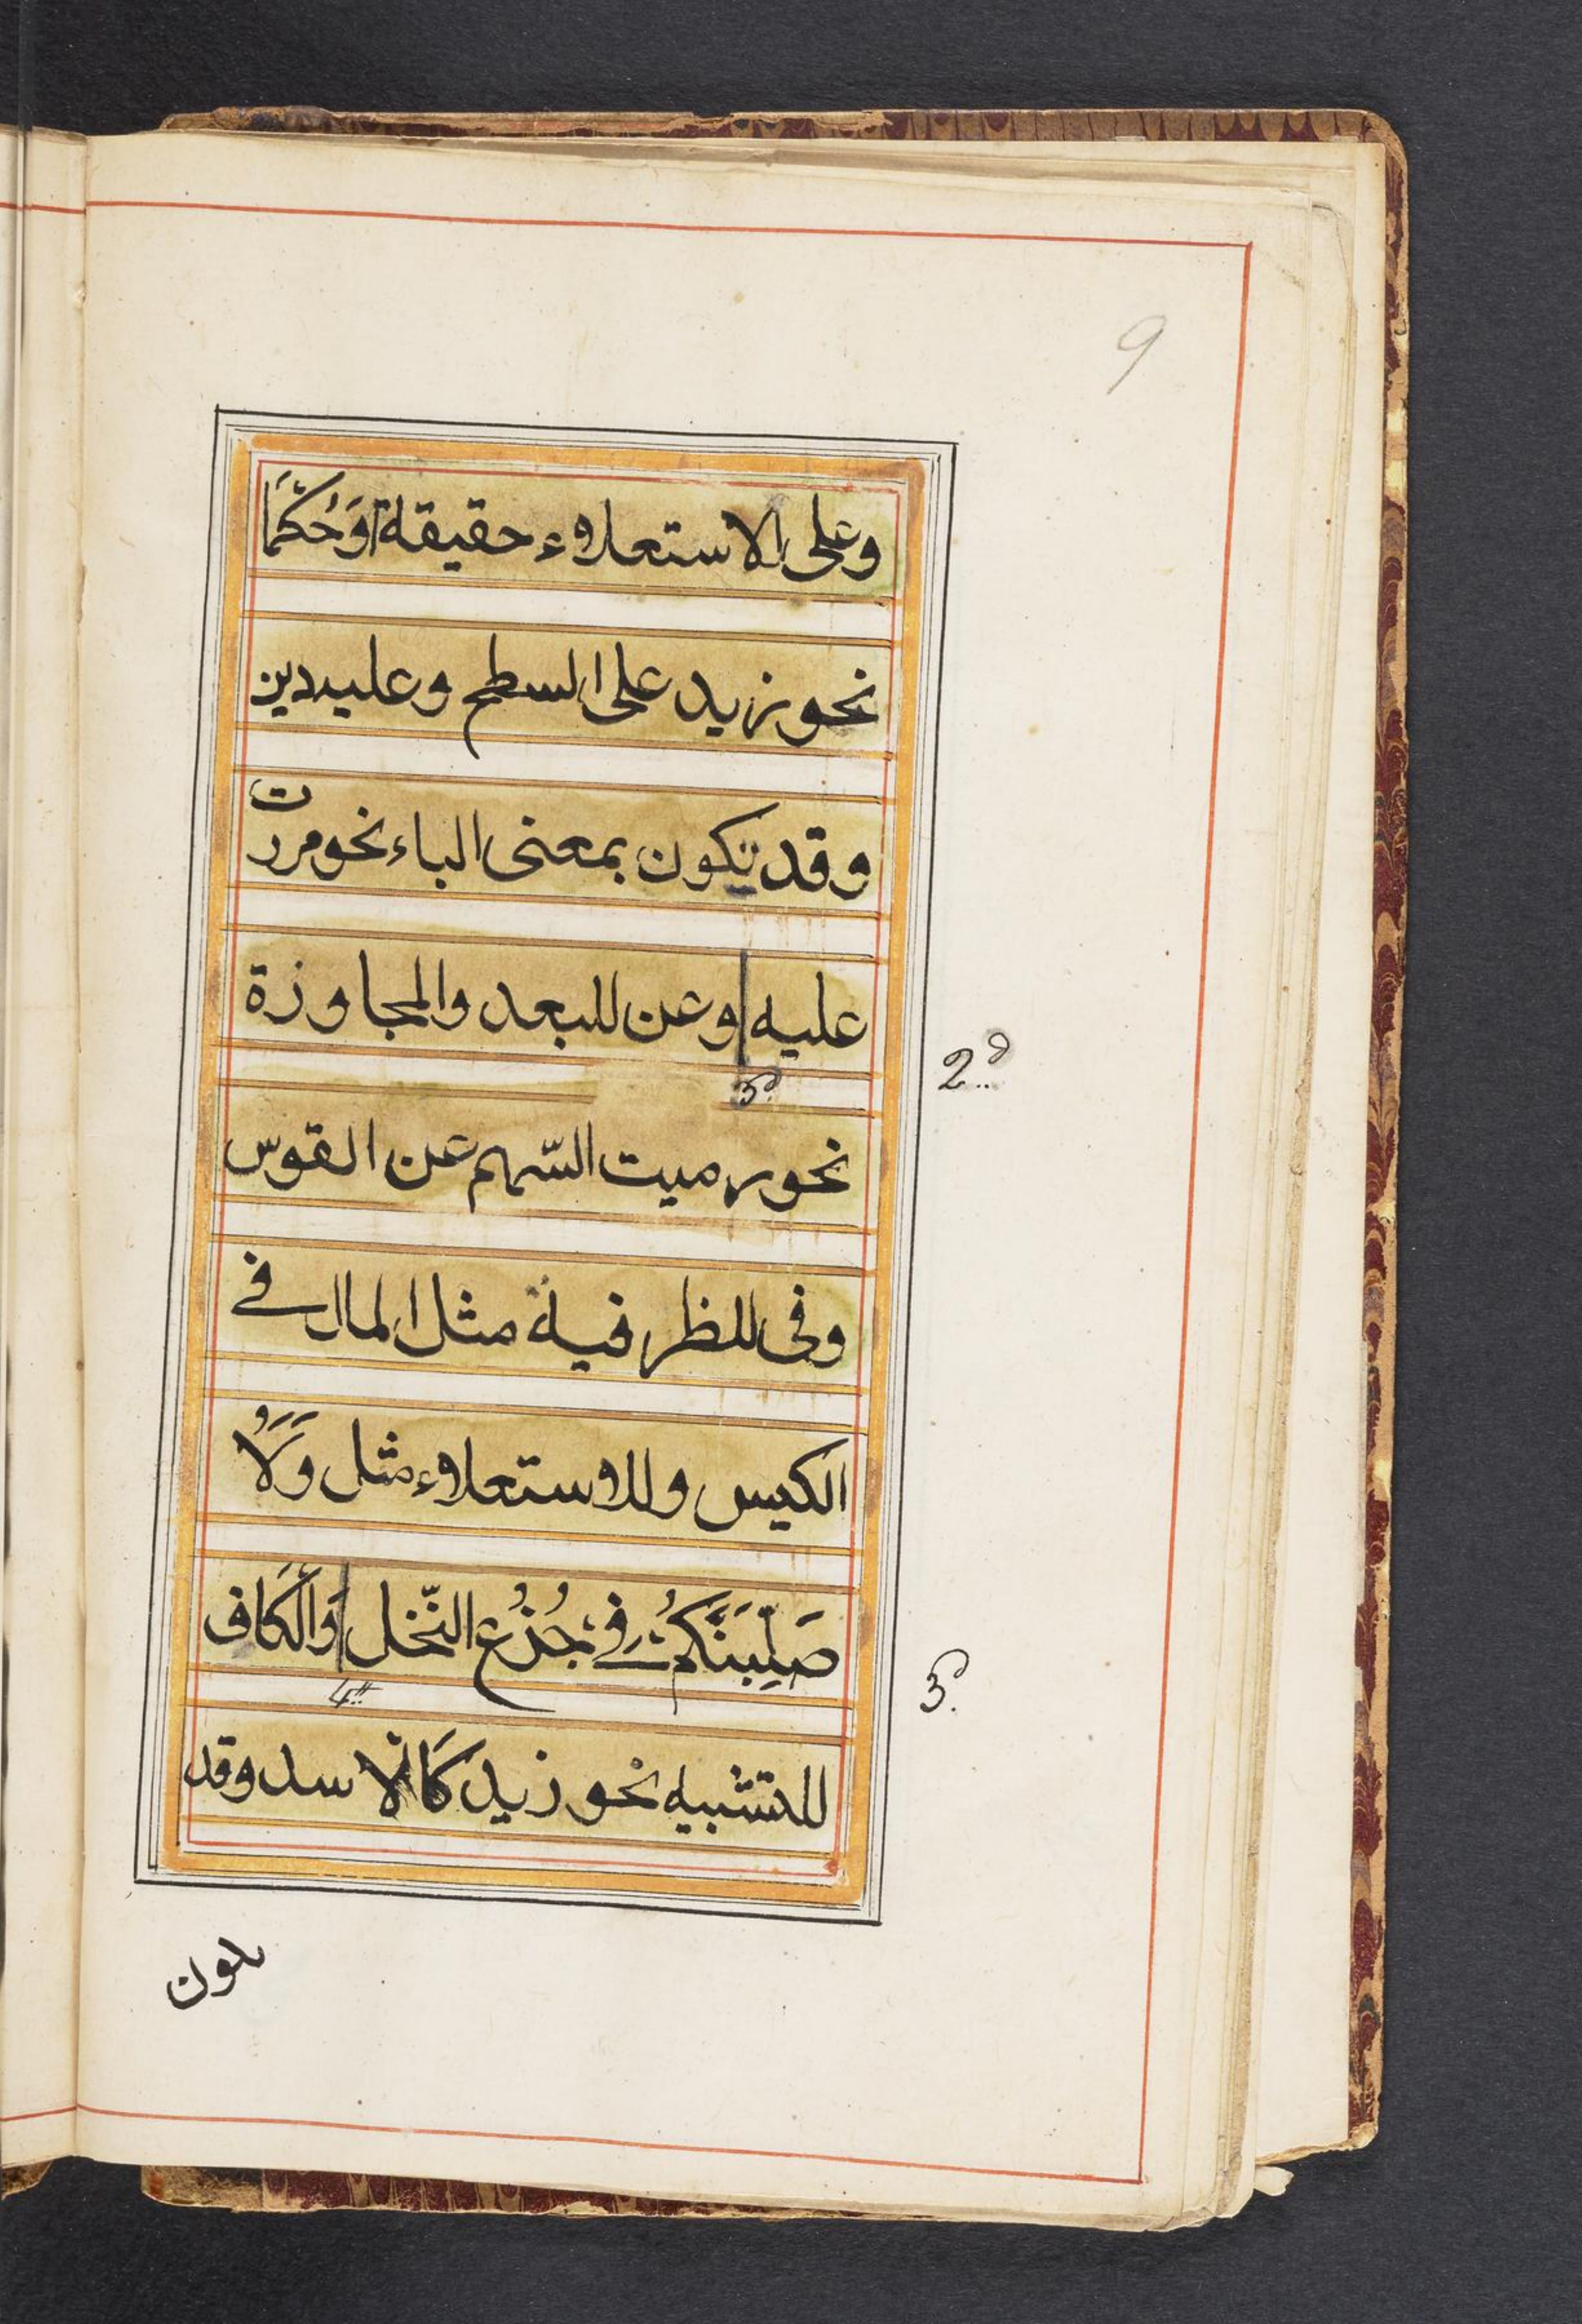 9
وعلى الاستعلاء حقيقة اَوحُكمًا
نحو زيد على السطح وعليه دين
وقد تكون بمعنى الباء نحو مررت
عليه | وعن للبعد والمجاوزة
2.d
3.d
نحو رميت السّهم عن القوس
وفى للظرفية مثل المال فے
الكيس وللاستعلاء مثل وَلَاُ
صَلِّبَنَّكُمْ فے جُذُع النّخل | وَالْكَاف
3.d
4.
للتشبيه نحو زيد كَالْاسد وقد
يكون